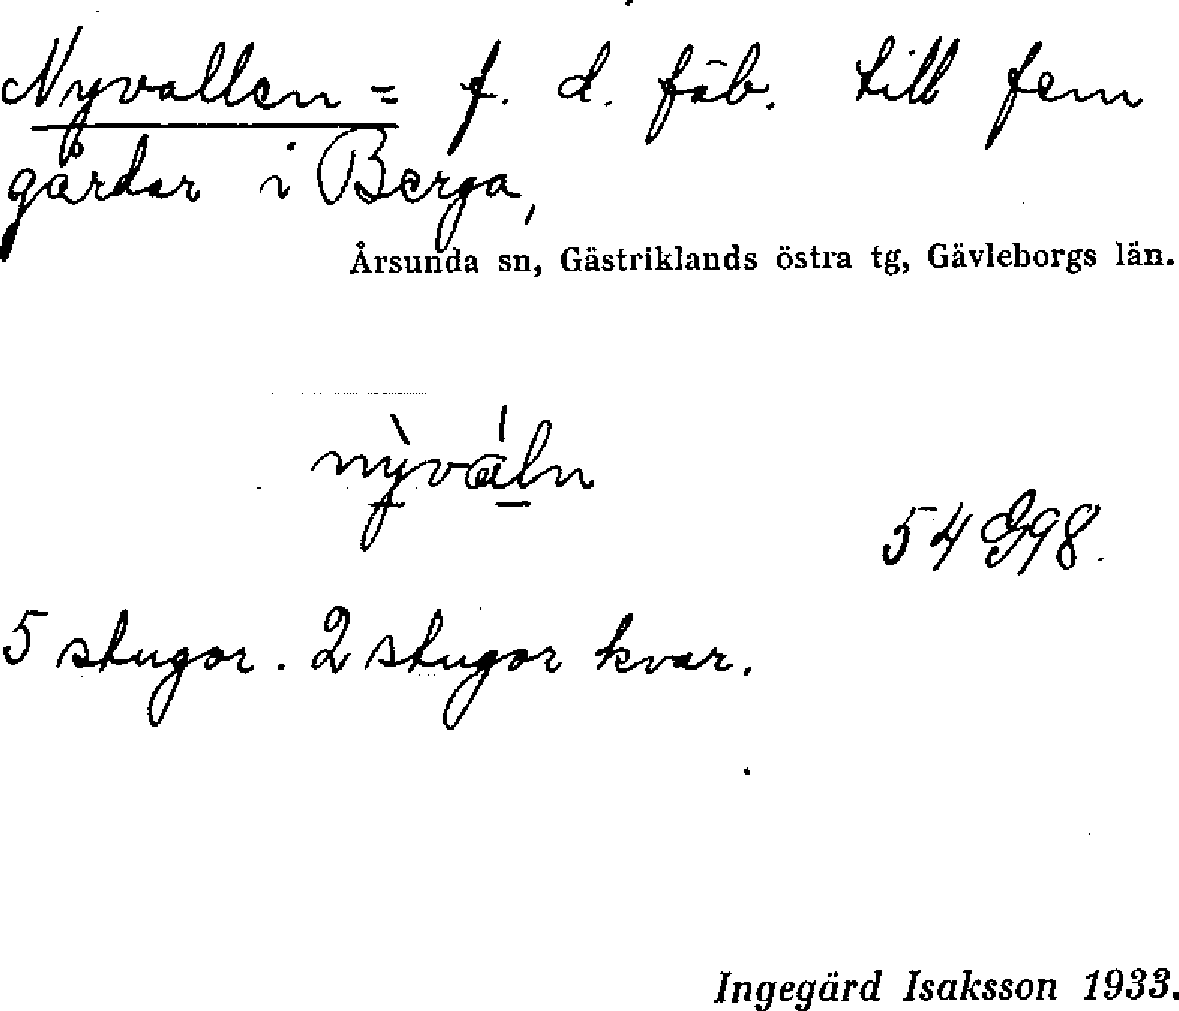 Nyvallen = f. d. fäb. till fem
gårdar i Berga,
Årsunda sn, Gästriklands östra tg, Gävleborgs län.
nỳváln
54 G98.
5 stugor. 2 stugor kvar.
Ingegärd Isaksson 1933.